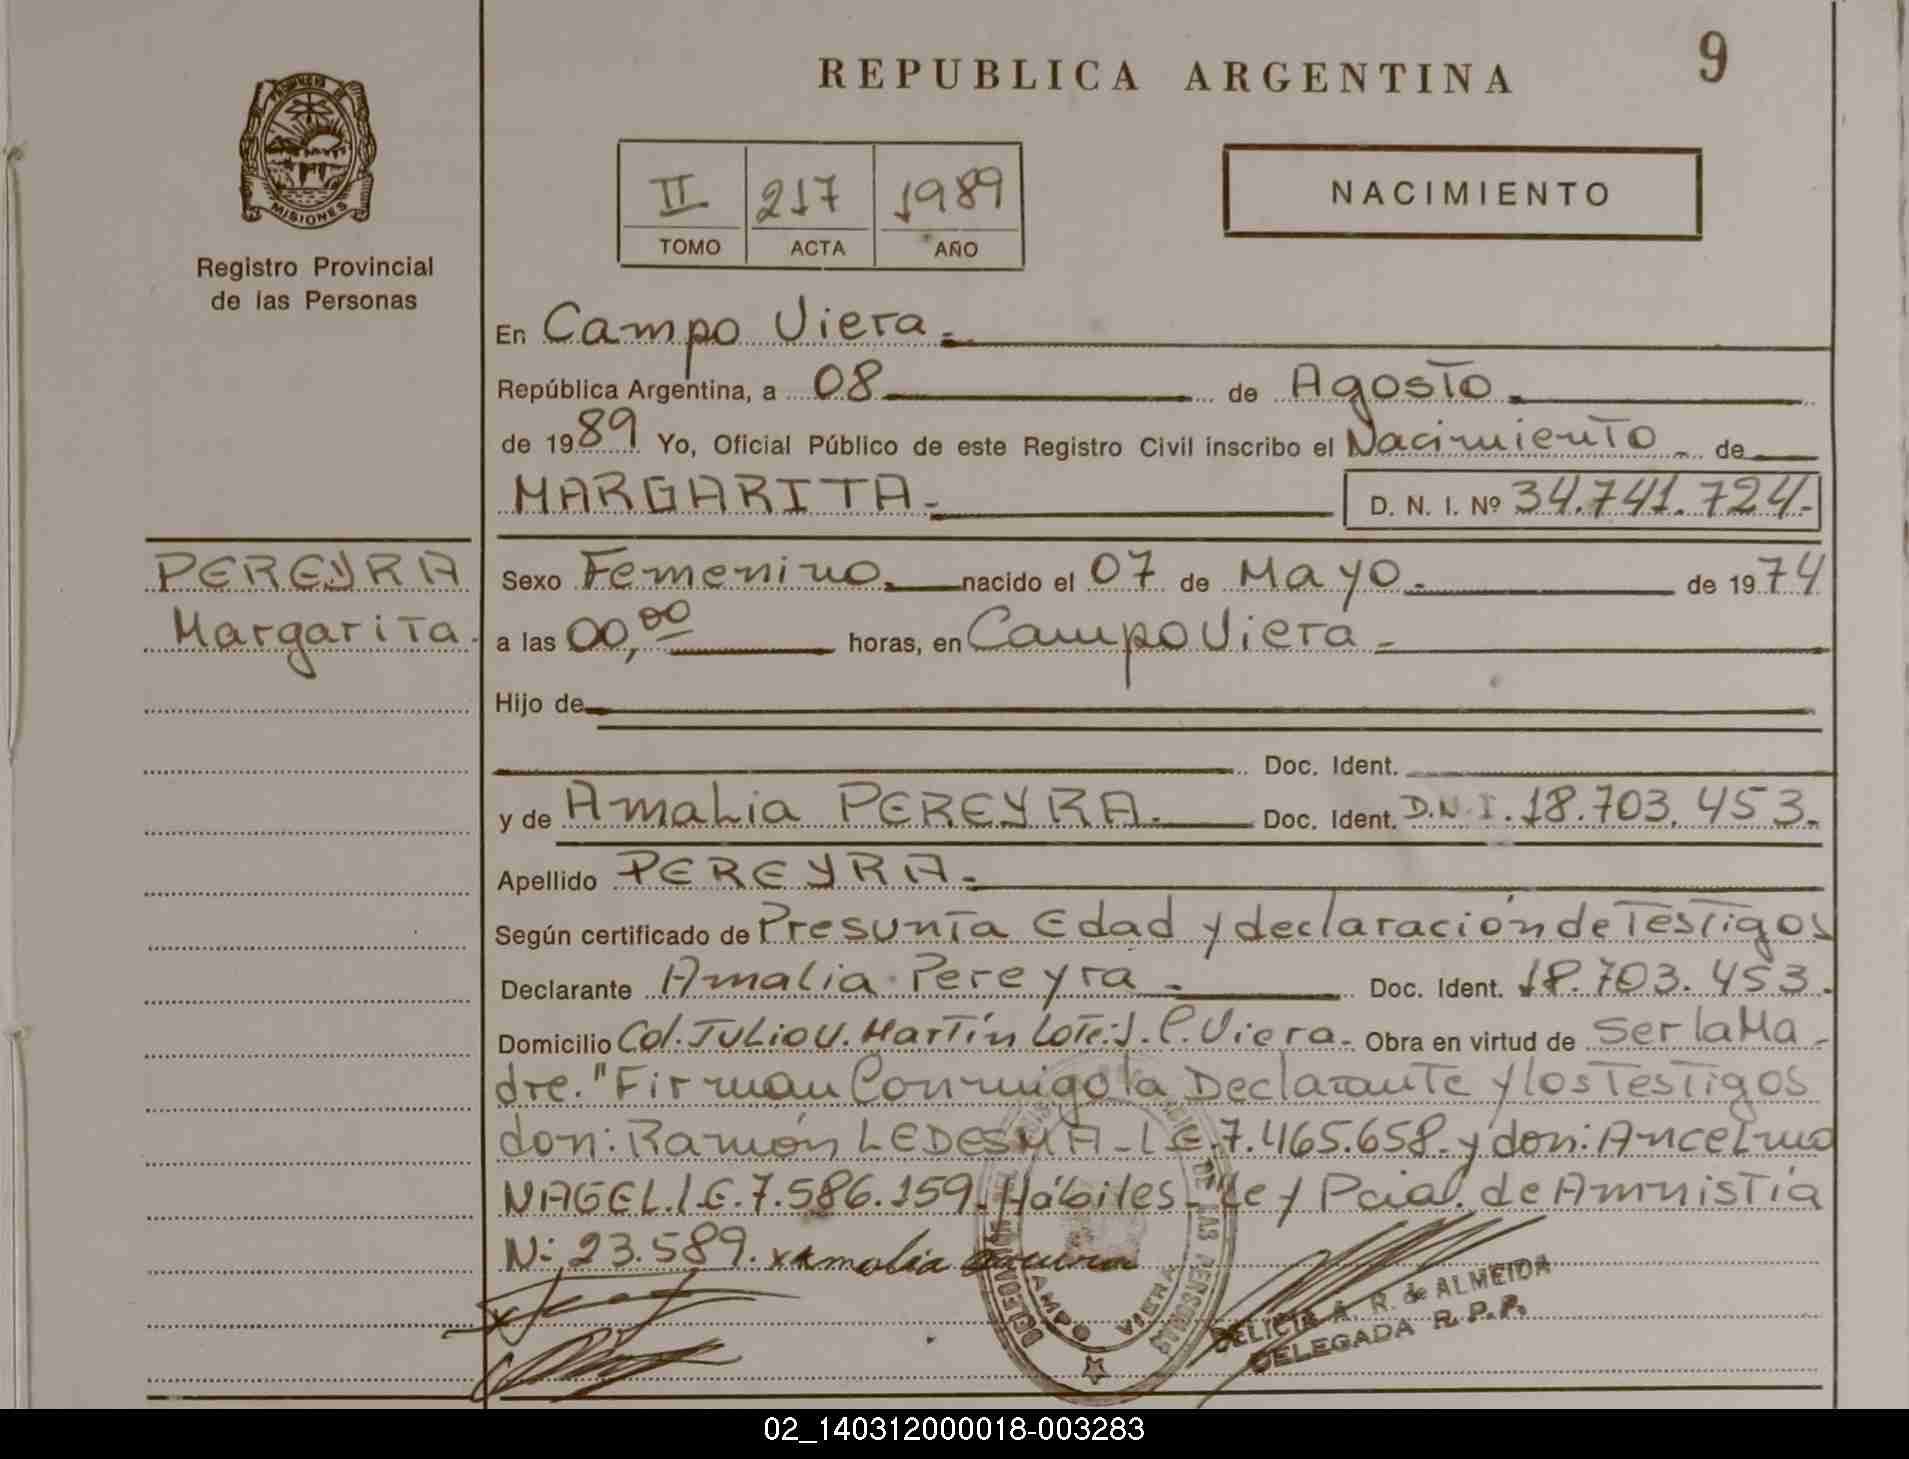 REPUBLICA ARGENTINA
9
PROVINCIA DE
MISIONES
Registro Provincial
de las Personas
II 217 1989
TOMO ACTA AÑO
NACIMIENTO
En Campo Viera.-
República Argentina, a 08 de Agosto
de 1989 Yo, Oficial Público de este Registro Civil inscribo el Nacimiento de
MARGARITA.- D. N. I. Nº 34.741.724.-
PEREYRA
Margarita.
Sexo Femenino. nacido el 07 de Mayo.- de 1974
a las 00,00 horas, en Campo Viera.-
Hijo de
Doc. Ident.
y de Amalia PEREYRA.- Doc. Ident. D.N.I. 18.703.453.-
Apellido PEREYRA.-
Según certificado de Presunta Edad y declaración de Testigos
Declarante Amalia Pereyra.- Doc. Ident. 18.703.453.
Domicilio Col. Julio U. Martín Lote: 1. C. Viera.- Obra en virtud de Ser la Ma-
dre. "Firman Conmigo la Declarante y los Testigos
don: Ramón LEDESMA - L.E. 7.465.658. y don: Ancelmo
NAGEL. L.E. 7.586.159. Hábiles - Ley Pcial. de Amnistía
N: 23.589. x Amalia
CAMPO VIERA
DE LAS PERSONAS
DELICIA A. R. de ALMEIDA
DELEGADA R. P. P.
02_140312000018-003283